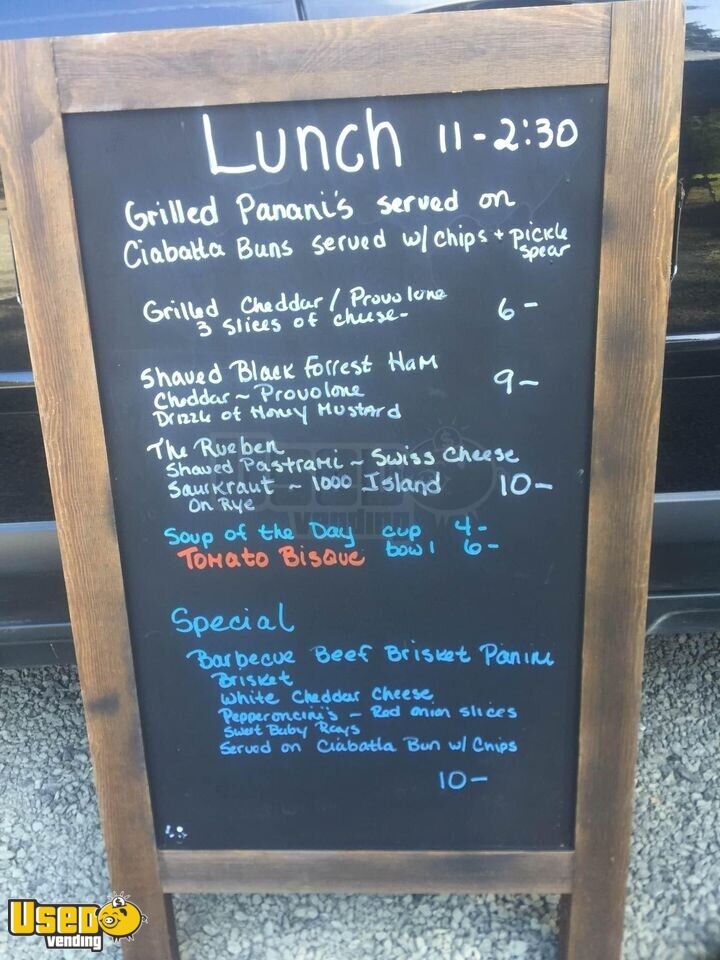 Lunch 11-2:30
Grilled Panani's served on
Ciabatta Buns served w/ chips + pickle spear
Grilled Cheddar / Provolone
3 slices of cheese-
6-
Shaved Black Forrest Ham
Cheddar ~ Provolone
Drizzle of Honey Mustard
9-
The Rueben
Shaved Pastrami ~ Swiss Cheese
Saurkraut ~ 1000 Island
10-
On Rye
Soup of the Day cup 4-
Tomato Bisque bowl 6-
Special
Barbecue Beef Brisket Panini
Brisket
White Cheddar Cheese
Pepperoncini's - Red onion slices
Sweet Baby Rays
Served on Ciabatta Bun w/ Chips
10-
USED
vending
USED
vending